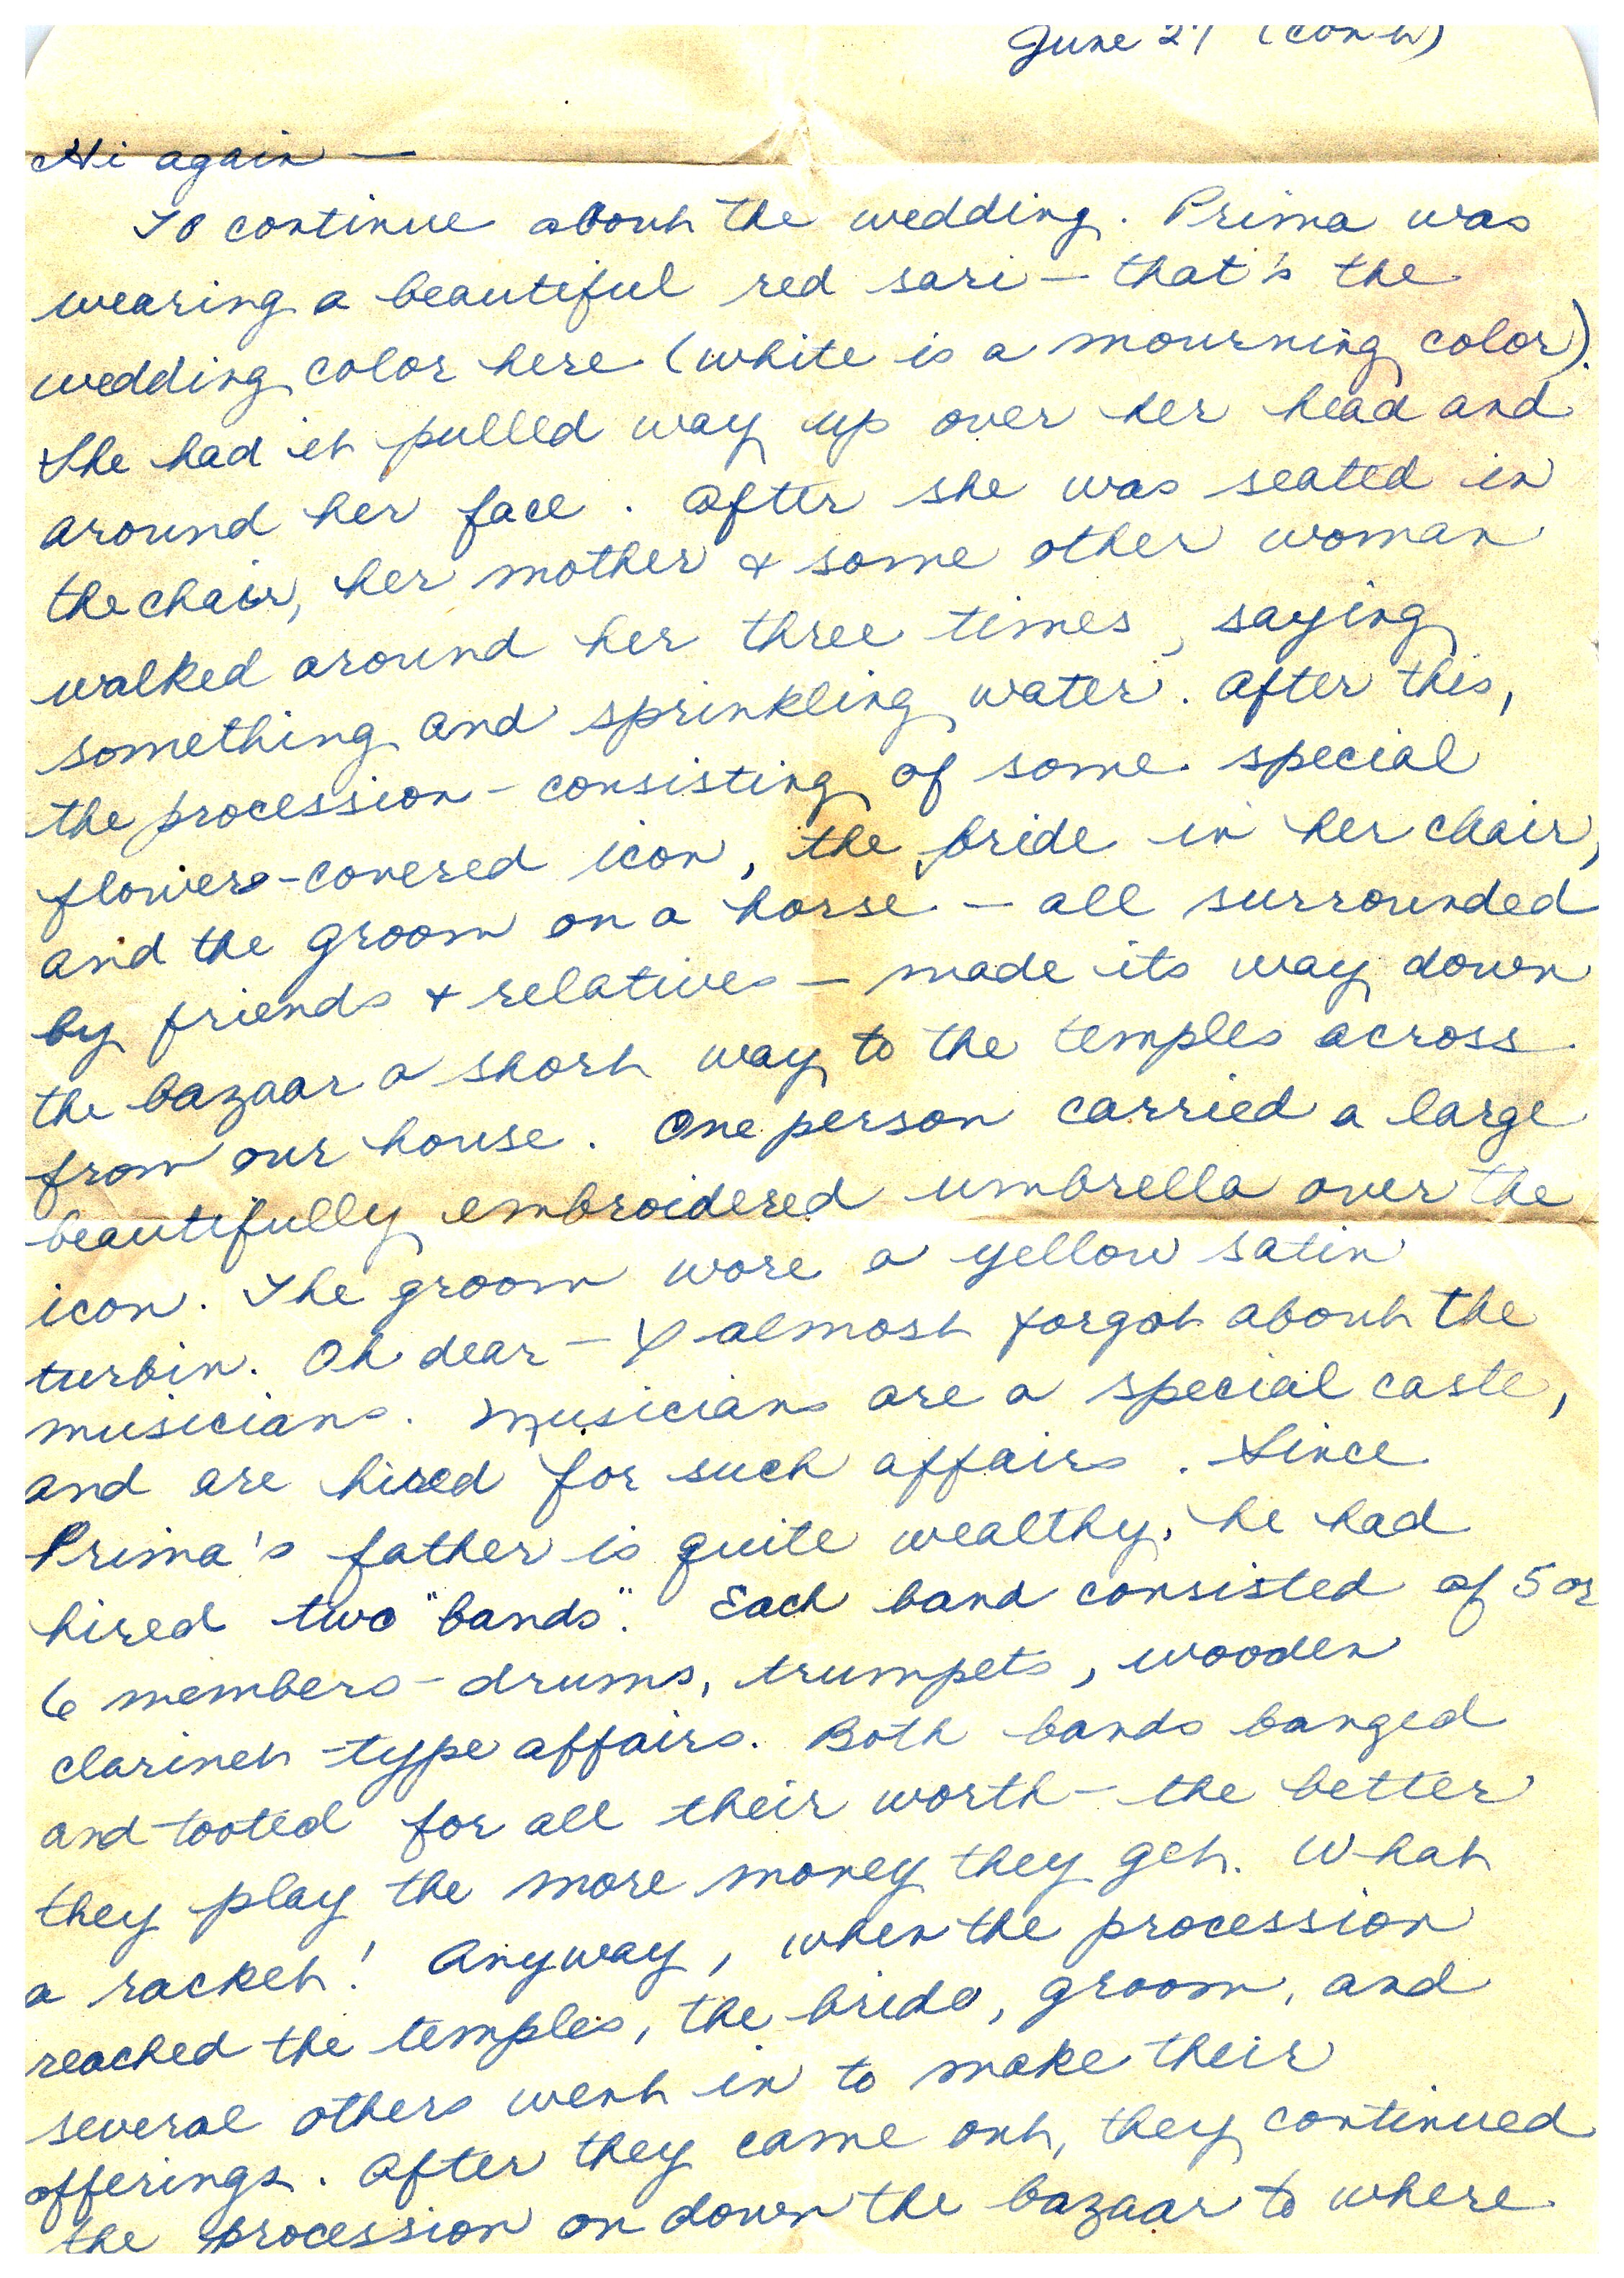 June 27 (con't)
Hi again —
To continue about the wedding. Prima was
wearing a beautiful red sari — that's the
wedding color here (white is a mourning color).
She had it pulled way up over her head and
around her face. After she was seated in
the chair, her mother & some other woman
walked around her three times, saying
something and sprinkling water. After this,
the procession - consisting of some special
flowers-covered icon, the bride in her chair,
and the groom on a horse — all surrounded
by friends & relatives — made its way down
the bazaar a short way to the temples across
from our house. One person carried a large
beautifully embroidered umbrella over the
icon. The groom wore a yellow satin
turbin. Oh dear — I almost forgot about the
musicians. Musicians are a special caste,
and are hired for such affairs. Since
Prima's father is quite wealthy, he had
hired two "bands". Each band consisted of 5 or
6 members - drums, trumpets, wooden
clarinet-type affairs. Both bands banged
and tooted for all their worth - the better
they play the more money they get. What
a racket! Anyway, when the procession
reached the temples, the bride, groom, and
several others went in to make their
offerings. After they came out, they continued
the procession on down the bazaar to where